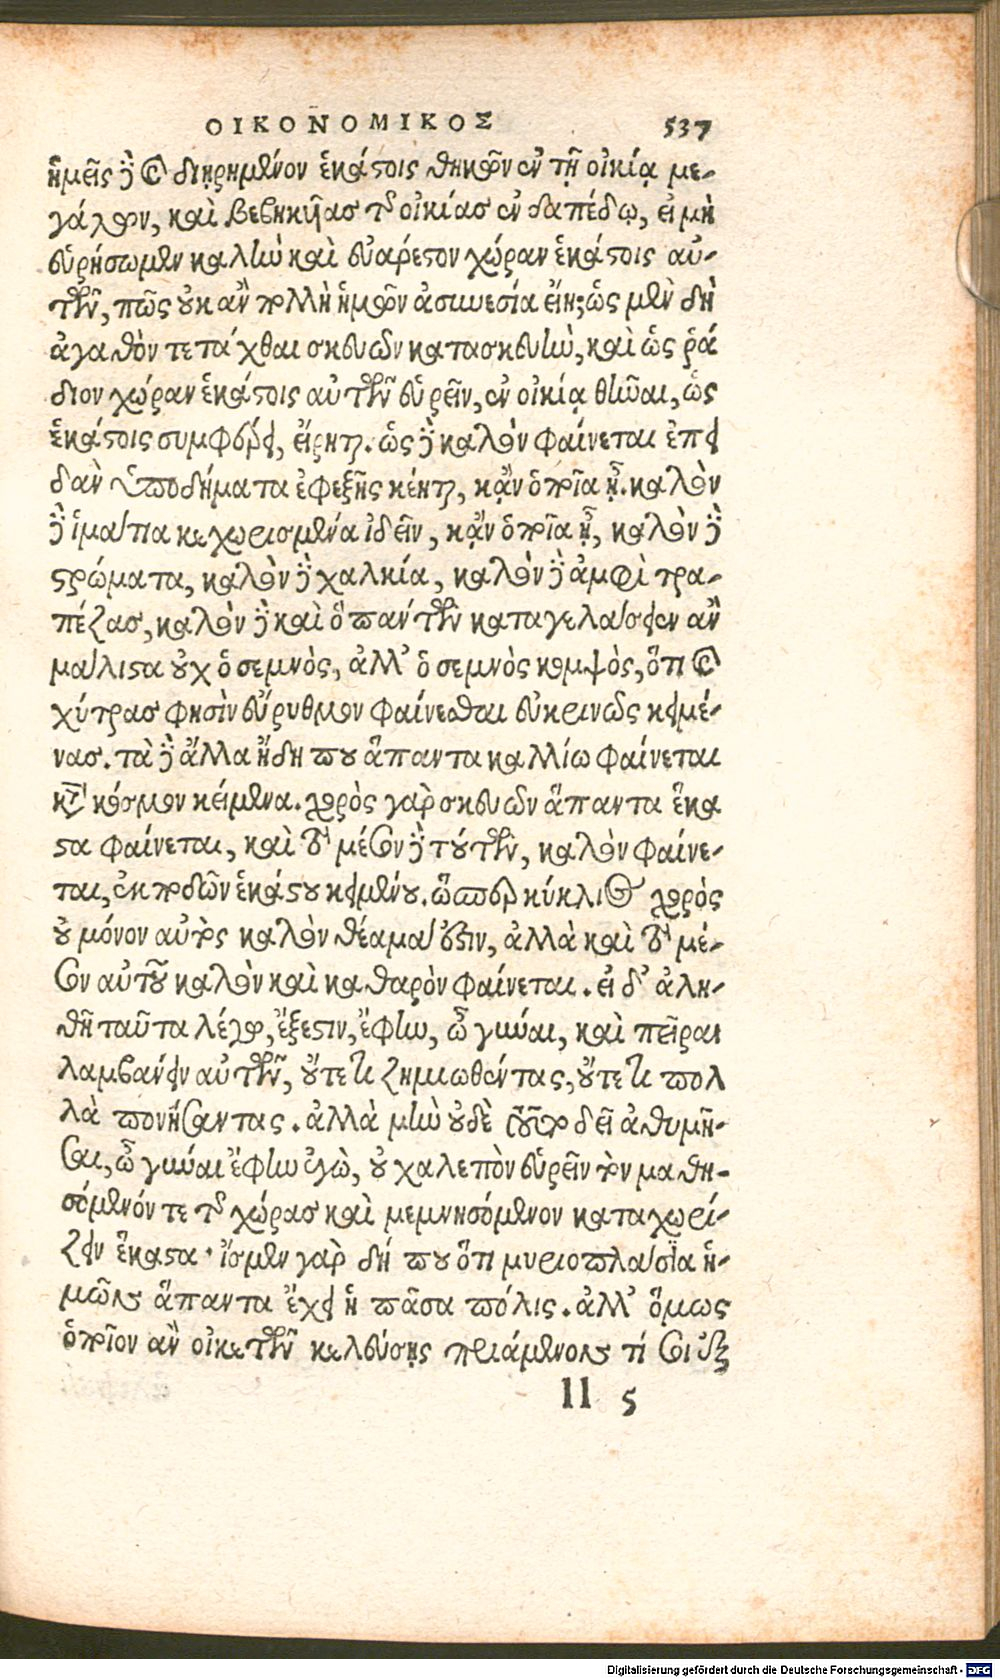 ΟΙΚΟΝΟΜΙΚΟΣ 537
ἡμεῖς δὲ καὶ διῃρημένον ἑκάστοις θηκῶν ἐν τῇ οἰκίᾳ με-
γάλων, καὶ βεβηκυίας τῆς οἰκίας ἐν δαπέδῳ, εἰ μὴ
εὑρήσωμεν καλὴν καὶ εὐάρεστον χώραν ἑκάστοις αὐ-
τῶν, πῶς οὐκ ἂν πολλὴ ἡμῶν ἀσυνεσία εἴη; ὡς μὲν δὴ
ἀγαθὸν τετάχθαι σκευῶν κατασκευὴν, καὶ ὡς ῥᾴ
διον χώραν ἑκάστοις αὐτῶν εὑρεῖν, ἐν οἰκίᾳ θῆναι, ὡς
ἑκάστοις συμφέρει, εἴρηται. ὡς δὲ καλὸν φαίνεται ἐπει
δὰν ὑποδήματα ἐφεξῆς κέηται, κᾂν ὁποῖα ᾖ. καλὸν
δὲ ἱμάτια κεχωρισμένα ἰδεῖν, κᾂν ὁποῖα ᾖ, καλὸν δὲ
στρώματα, καλὸν δὲ χαλκία, καλὸν δὲ ἀμφὶ τρα-
πέζας, καλὸν δὲ καὶ ὃ πάντων καταγελάσειεν ἂν
μάλιστα οὐχ ὁ σεμνὸς, ἀλλ' ὁ σεμνὸς κομψὸς, ὅτι καὶ
χύτρας φησὶν εὔρυθμον φαίνεσθαι εὐκρινῶς κειμέ-
νας. τὰ δὲ ἄλλα ἤδη που ἅπαντα καλλίω φαίνεται
κατὰ κόσμον κείμενα. χορὸς γὰρ σκευῶν ἅπαντα ἕκα
στα φαίνεται, καὶ τὸ μέσον δὲ τούτων, καλὸν φαίνε-
ται, ἐκποδὼν ἑκάστου κειμένου. ὥσπερ κύκλιος χορὸς
οὐ μόνον αὐτὸς καλὸν θέαμά ἐστιν, ἀλλὰ καὶ τὸ μέ-
σον αὐτοῦ καλὸν καὶ καθαρὸν φαίνεται. εἰ δ' ἀλη-
θῆ ταῦτα λέγω, ἔξεστιν, ἔφην, ὦ γύναι, καὶ πεῖραι
λαμβάνειν αὐτῶν, οὔτε τι ζημιωθέντας, οὔτε τι πολ
λὰ πονήσαντας. ἀλλὰ μὴν οὐδὲ τοῦτο δεῖ ἀθυμῆ-
σαι, ὦ γύναι ἔφην ἐγὼ, οὐ χαλεπὸν εὑρεῖν τὸν μαθη-
σόμενόν τε τὰς χώρας καὶ μεμνησόμενον καταχωρί-
ζειν ἕκαστα. ἴσμεν γὰρ δή που ὅτι μυριοπλάσια ἡ-
μῶν ἅπαντα ἔχει ἡ πᾶσα πόλις. ἀλλ' ὅμως
ὁποῖον ἂν οἰκετῶν κελεύσῃς πριάμενον τί σοι ἐξ
ll 5
Digitalisierung gefördert durch die Deutsche Forschungsgemeinschaft - DFG